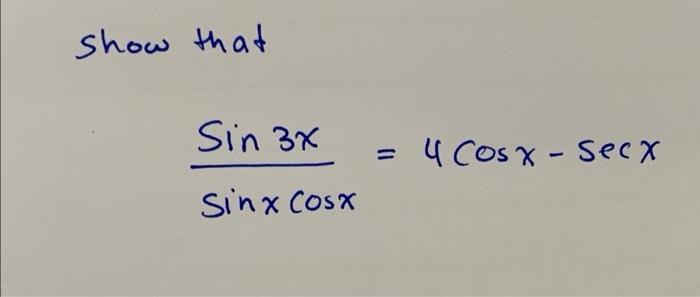 show that
Sin 3x
/ sinx cosx = 4 cosx - secx